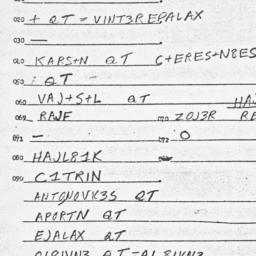 020 + QT = VINT3REPALAX
030 —
040 KARS+N QT C+ERES+N8ES
050 : QT
060 VAJ+S+L QT HAJ
069 RAJF 070 ZOJ3R RE
071 — 072 O
080 HAJL81K
090 C1TRIN
ANTONOVK3S QT
APORTN QT
EJALAX QT